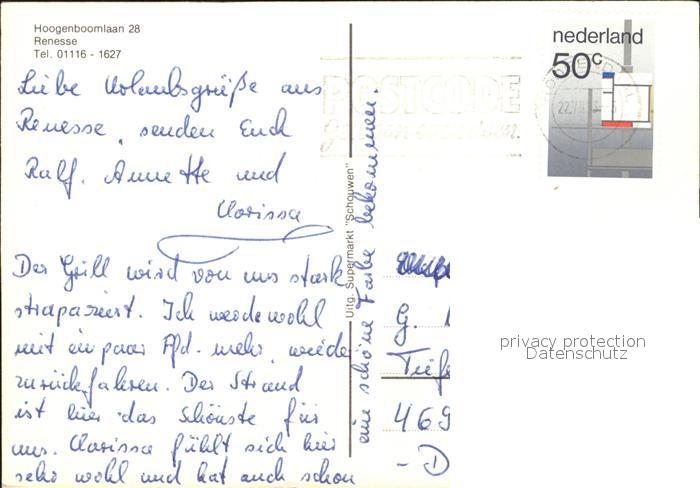 Hoogenboomlaan 28
Renesse
Tel. 01116 - 1627
Liebe Urlaubsgrüße aus
Renesse, senden Euch
Ralf, Annette und
Clarissa
Der Grill wird von uns stark
strapaziert. Ich werde wohl
mit ein paar Pfd. mehr, wieder
zurückfahren. Der Strand
ist hier das Schönste für
uns. Clarissa fühlt sich hier
sehr wohl und hat auch schon
eine schöne Farbe bekommen.
Uitg. Supermarkt "Schouwen"
nederland
50c
POSTCODE
G.
Tief
469
- D
privacy protection
Datenschutz